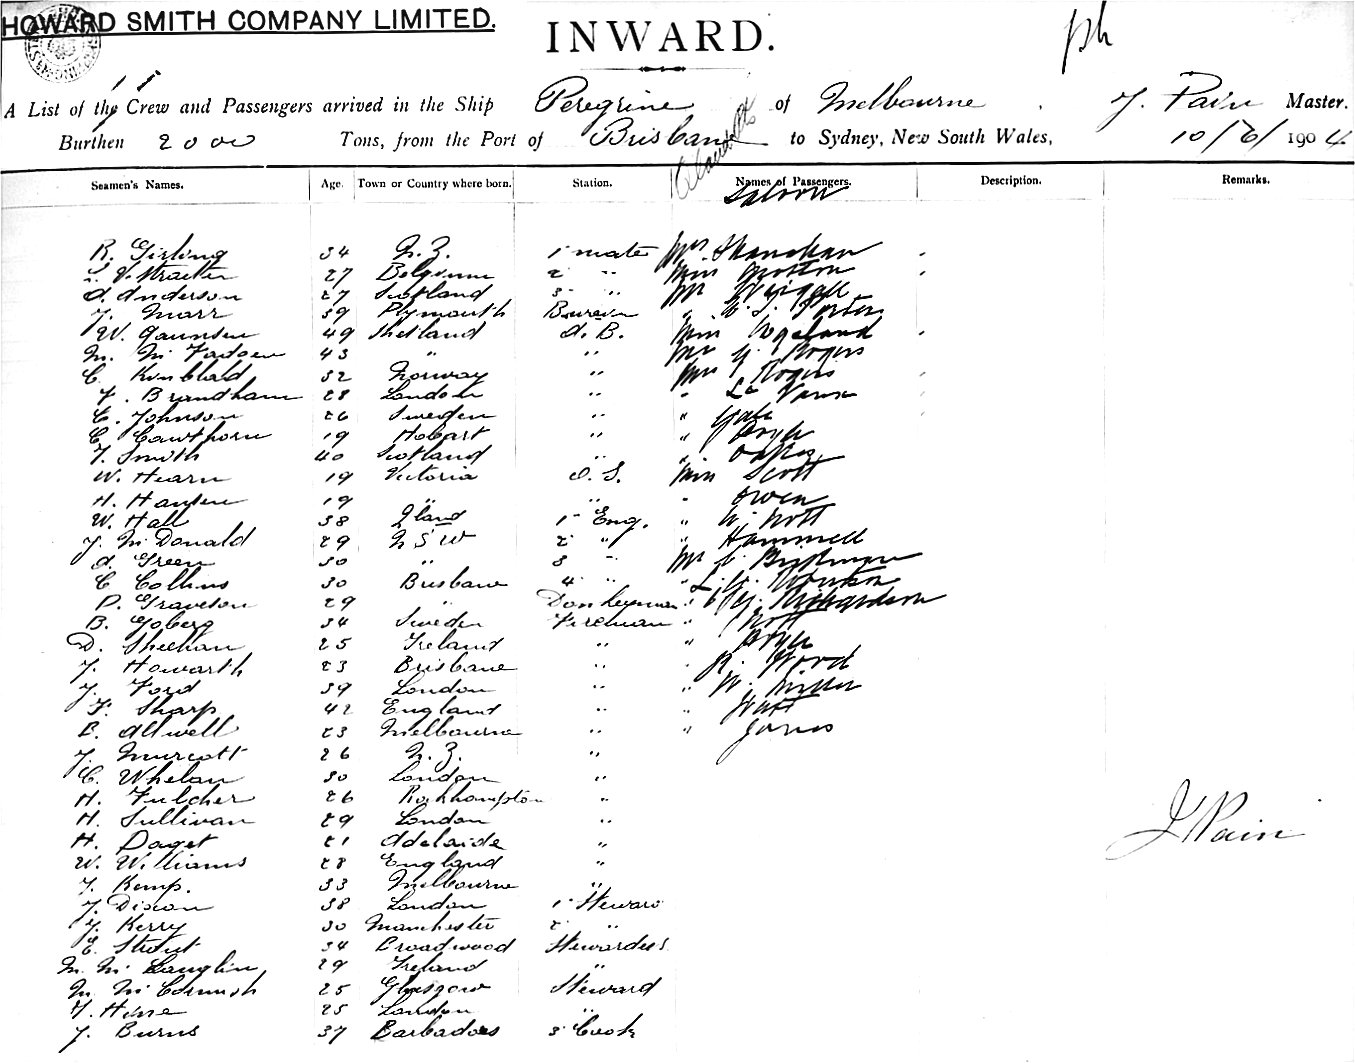 HOWARD SMITH COMPANY LIMITED.
INWARD.
A List of the Crew and Passengers arrived in the Ship Peregrine of Melbourne, J. Pain Master.
Burthen 2000 Tons, from the Port of Brisbane to Sydney, New South Wales, 10/6/1904
Seamen's Names. Age. Town or Country where born. Station. Names of Passengers. Description. Remarks.
Saloon
R. Girling 34 N.Z. 1 mate Mrs Shanahan
27 Belgium 2 " Miss Motton
A. Anderson 27 Scotland 3 " Mr
J. Marr 39 Plymouth " Porter
W. 49 Shetland A.B. Miss
M. McFadgen 43 " " Mr G. Rogers
C. 32 Norway " Mrs Rogers
F. Brandham 28 London "
C. Johnson 26 Sweden " "
C. Cawthorn 19 Hobart " "
T. Smith 40 Scotland " "
W. Hearn 19 Victoria O.S. Miss Scott
H. Hansen 19 " " " Owen
W. Hall 38 1 Eng. "
J. McDonald 29 NSW 2 " " Hammell
A. Green 30 " 3 " Mr
C. Collins 30 Brisbane 4 " "
P. Graveson 29 " Donkeyman " Richardson
B. Goberg 34 Sweden Fireman "
D. Sheehan 25 Ireland "
J. Howarth 23 Brisbane " R. Wood
J. Ford 39 London " " W. Miller
F. Sharp 42 England " " Watt
E. Allwell 23 Melbourne " " Jones
J. Murcott 26 N.Z. "
C. Whelan 30 London "
H. Fulcher 26 Rockhampton "
H. Sullivan 29 London "
J Pain
H. Daget 21 Adelaide "
W. Williams 28 England "
J. Kemp. 33 Melbourne "
J. Dixon 38 London 1 Steward
J. Kerry 30 Manchester 2 "
E. Strout 34 Broadwood Stewardess
M. McLauglin 29 Ireland "
M. McCormish 25 Glasgow Steward
H. Hine 25 London "
J. Burns 37 Barbadoes 3 Cook